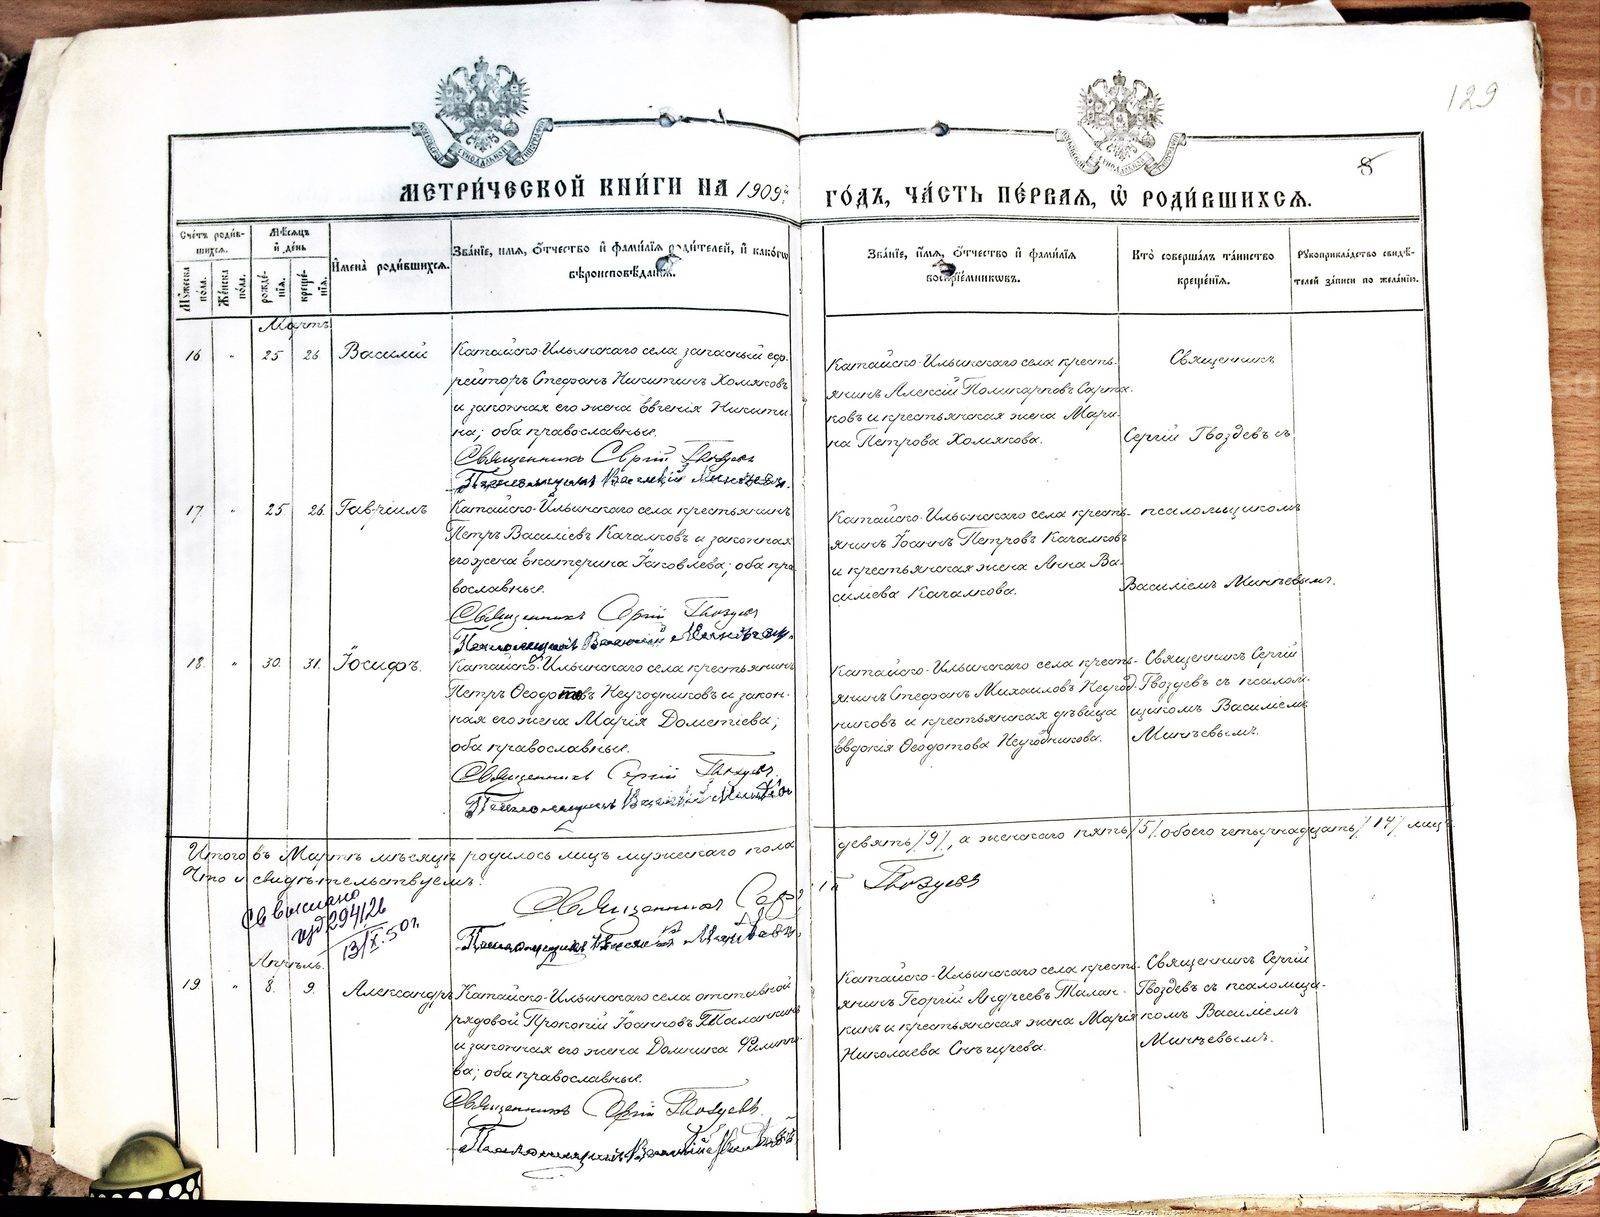 129
8
МЕТРИ́ЧЕСКОЙ КНИ́ГИ НА 1909й
ГО́ДЪ, ЧА́СТЬ ПЕ́РВАЯ, Ѡ҆ РОДИ́ВШИХСЯ.
Сче́тъ роди́вшихся.
Му́жеска по́ла.
Же́нска по́ла.
Мѣ́сяцъ и҆ де́нь
рожде́нїя.
креще́нїя.
И҆мена̀ роди́вшихся.
Зва́нїе, и҆́мя, ѻ҆́тчество и҆ фами́лїя роди́телей, и҆ како́гѡ
вѣроисповѣ́данїя.
Зва́нїе, и҆́мя, ѻ҆́тчество и҆ фами́лїя
воспрїе́мникѡвъ.
Кто̀ соверша́лъ та́инство
креще́нїя.
Рꙋкоприкла́дство свидѣ́-
телей за́писи по жела́нїю.
Мартъ
16 " 25 26 Василій
Катайско-Ильинскаго села запасный еф-
рейторъ Стефанъ Никитинъ Хомяковъ
и законная его жена Евгенія Никити-
на; оба православные.
Священникъ Сергій Гвоздевъ
Псаломщикъ Василій Минѣевъ.
Катайско-Ильинскаго села кресть-
янинъ Алексій Поликарповъ Сарта-
ковъ и крестьянская жена Мари-
на Петрова Хомякова.
Священникъ
Сергій Гвоздевъ съ
17 " 25 26. Гавріилъ
Катайско-Ильинскаго села крестьянинъ
Петръ Василіевъ Качалковъ и законная
его жена Екатерина Іаковлева; оба пра-
вославные.
Священникъ Сергій Гвоздевъ
Псаломщикъ Василій Минѣевъ.
Катайско-Ильинскаго села кресть-
янинъ Іоаннъ Петровъ Качалковъ
и крестьянская жена Анна Ва-
силіева Качалкова.
псаломщикомъ
Василіемъ Минѣевымъ.
18. " 30. 31. Іосифъ.
Катайско-Ильинскаго села крестьянинъ
Петръ Ѳеодотовъ Негодниковъ и закон-
ная его жена Марія Дометіева;
оба православные.
Священникъ Сергій Гвоздевъ
Псаломщикъ Василій Минѣевъ
Катайско-Ильинскаго села кресть-
янинъ Стефанъ Михаиловъ Негод-
никовъ и крестьянская дѣвица
Евдокія Ѳеодотова Негодникова.
Священникъ Сергій
Гвоздевъ съ псалом-
щикомъ Василіемъ
Минѣевымъ.
Итого въ Мартѣ мѣсяцѣ родилось лицъ мужескаго пола
девять /9/, а женскаго пять /5/ обоего четырнадцать /14/ лицъ.
Что и свидѣтельствуемъ:
Священникъ Сергій Гвоздевъ
Псаломщикъ Василій Минѣевъ
Св выслано
294/26
13/X.50г.
Апрѣль.
19 " 8. 9. Александръ
Катайско-Ильинскаго села отставной
рядовой Прокопій Іоанновъ Таланкинъ
и законная его жена Домника Филиппо-
ва; оба православные.
Священникъ Сергій Гвоздевъ.
Псаломщикъ Василій Минѣевъ
Катайско-Ильинскаго села кресть-
янинъ Георгій Андреевъ Талан-
кинъ и крестьянская жена Марія
Николаева Снѣгирева.
Священникъ Сергій
Гвоздевъ съ псаломщи-
комъ Василіемъ
Минѣевымъ.